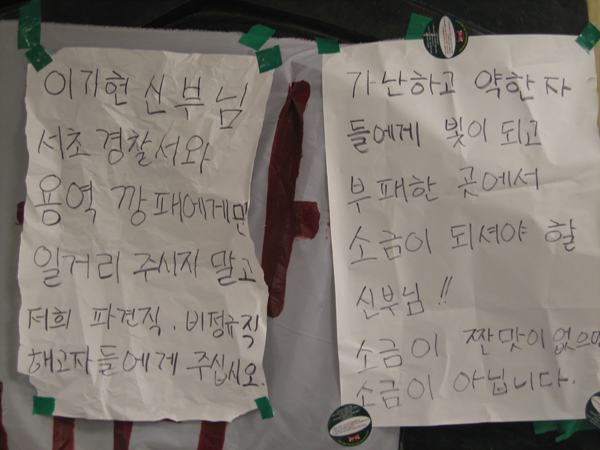 이기헌 신부님
서초 경찰서와
용역 깡패에게만
일거리 주시지 말고
저희 파견직, 비정규직
해고자들에게 주십시오.
가난하고 약한 자
들에게 빛이 되고
부패한 곳에서
소금이 되셔야 할
신부님!!
소금이 짠맛이 없으면
소금이 아닙니다.